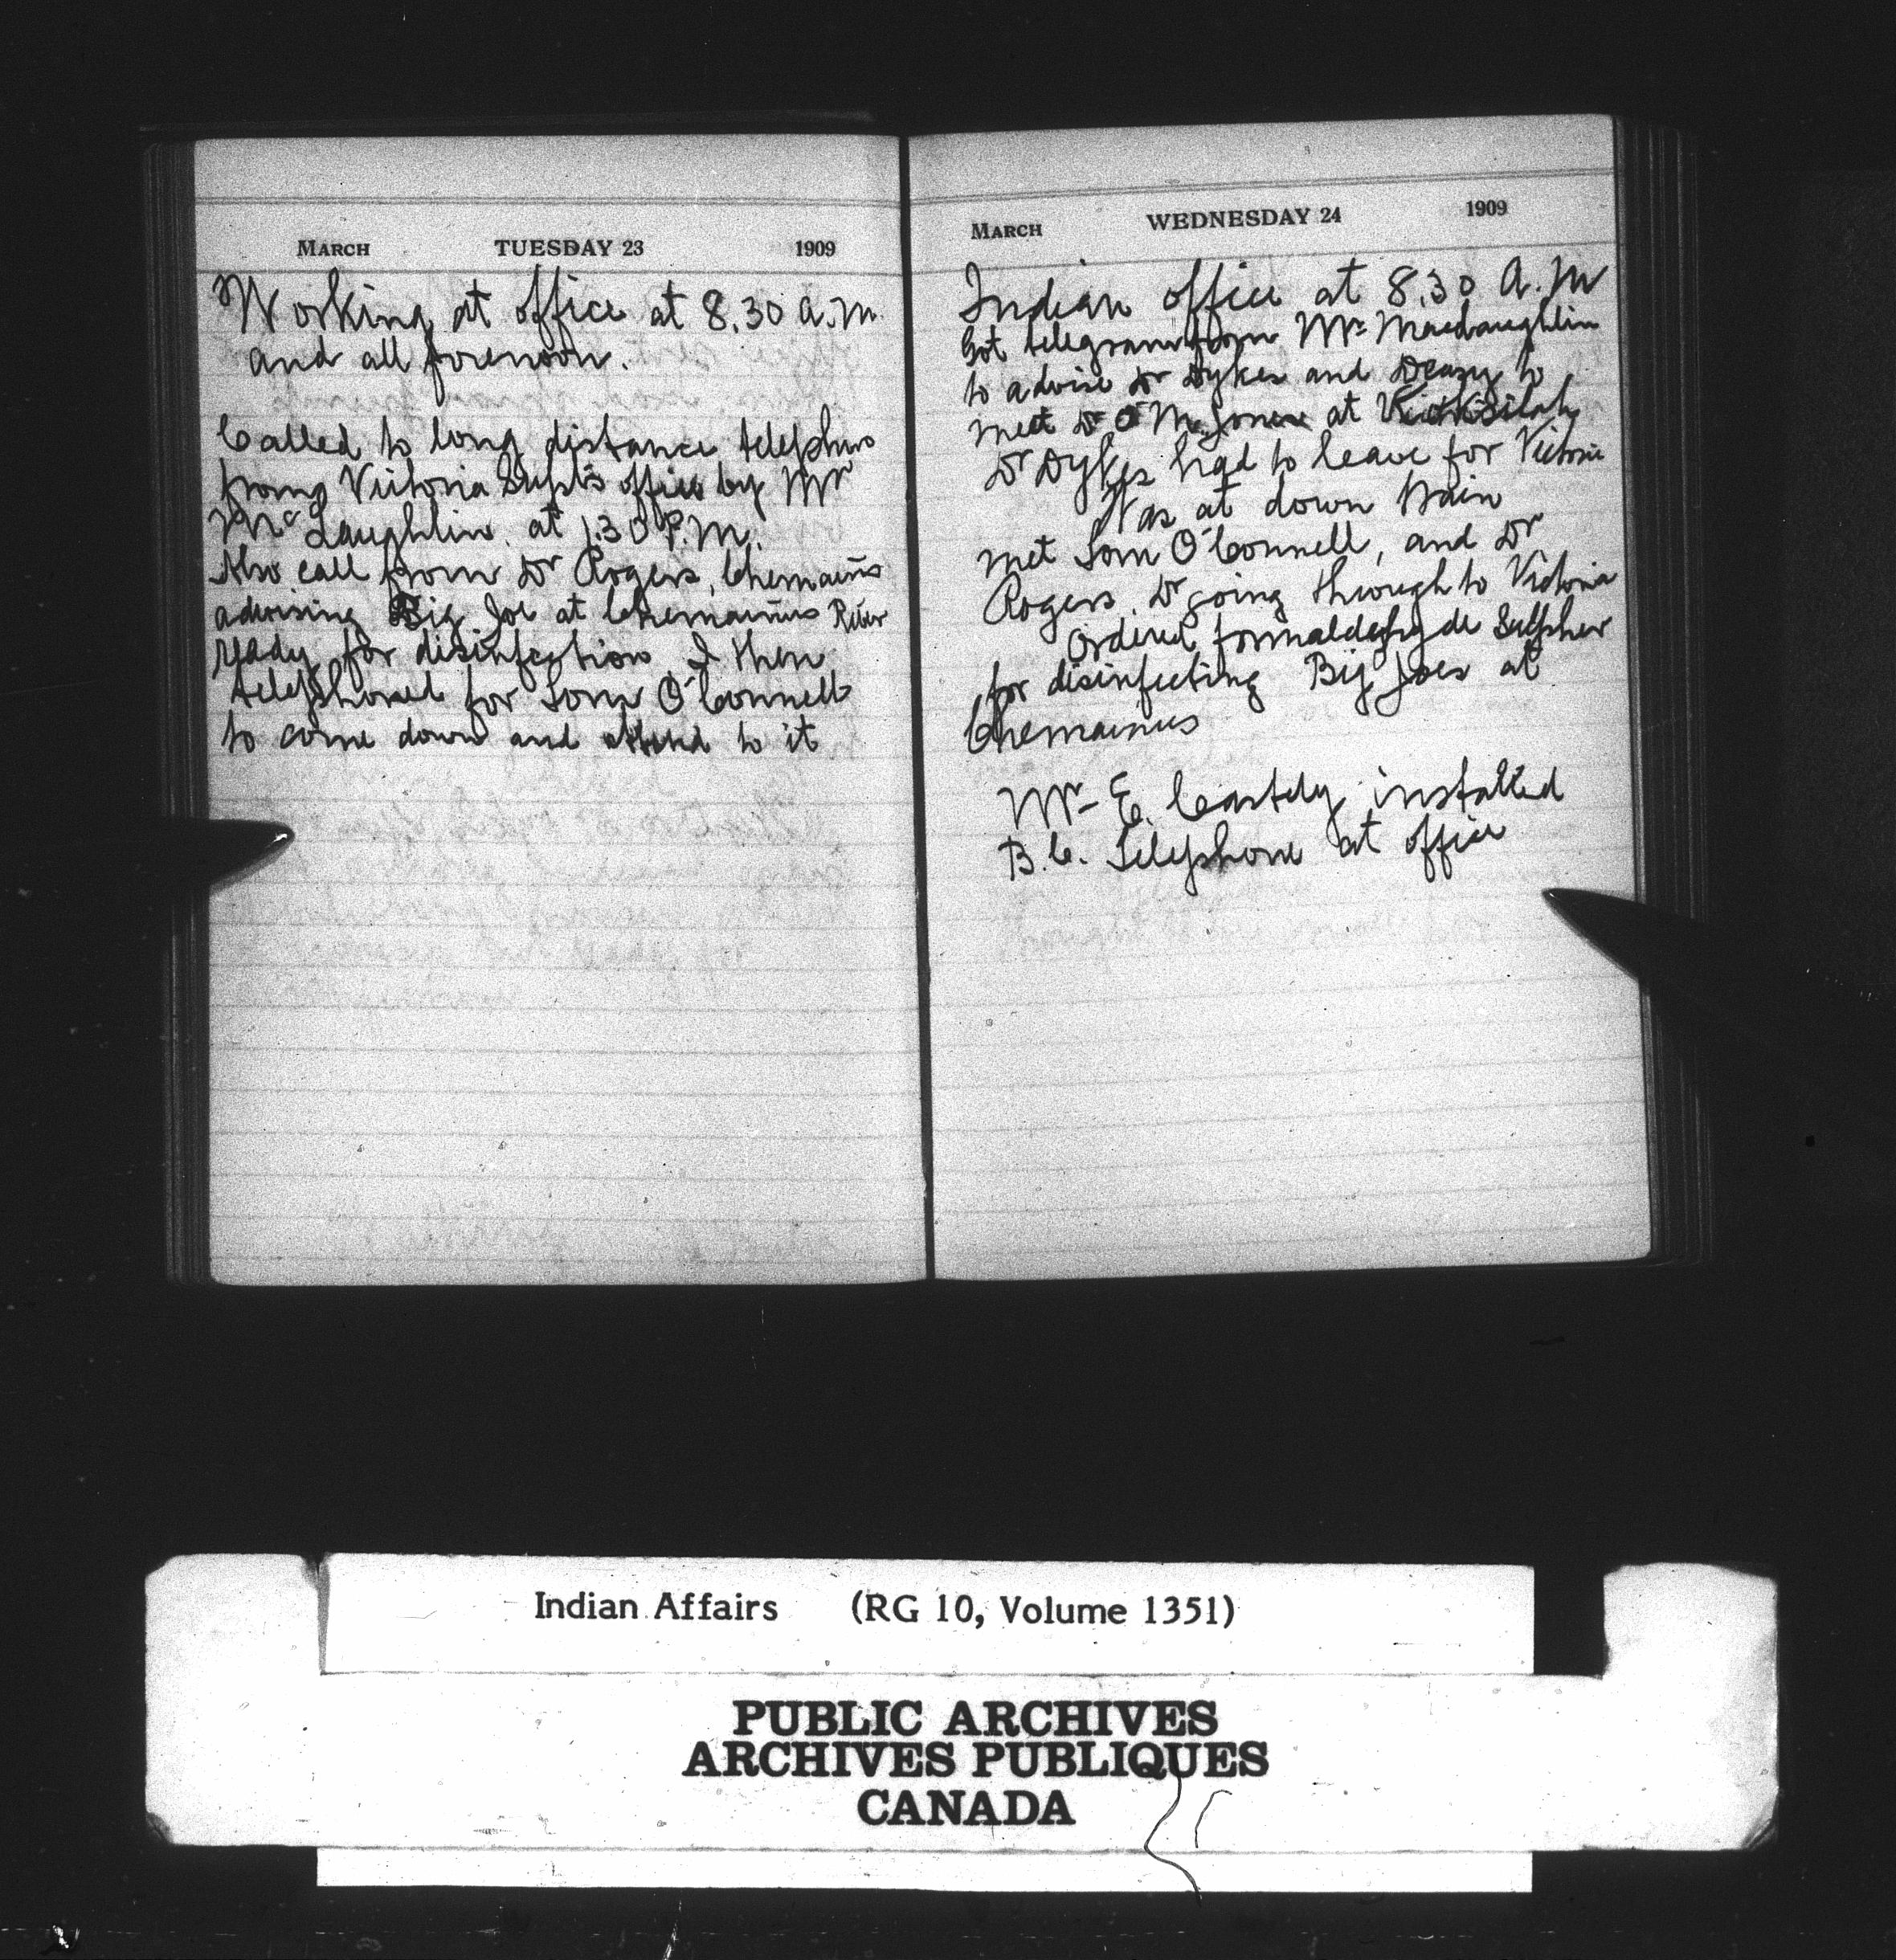 MARCH TUESDAY 23 1909
Working at office at 8.30 A.M.
and all forenoon.
Called to long distance telephone
from Victoria Supt's office by Mr
McLaughlin. at 1.30 P.M.
Also call from Dr Rogers, Chemainus
advising Big Joe at Chemainus River
ready for disinfection I then
telephoned for Tom O'Connell
to come down and attend to it
MARCH WEDNESDAY 24 1909
Indian office at 8.30 A.M
Got telegram from Mr MacLaughlin
to advise Dr Dykes and Deasy to
meet Dr O M Jones at
Dr Dykes had to leave for Victoria
Was at down train
met Tom O'Connell, and Dr
Rogers. Dr going through to Victoria
Ordered formaldehyde Sulpher
for disinfecting Big Joes at
Chemainus
Mr E. installed
B.C. Telephone at office
Indian Affairs (RG 10, Volume 1351)
PUBLIC ARCHIVES
ARCHIVES PUBLIQUES
CANADA